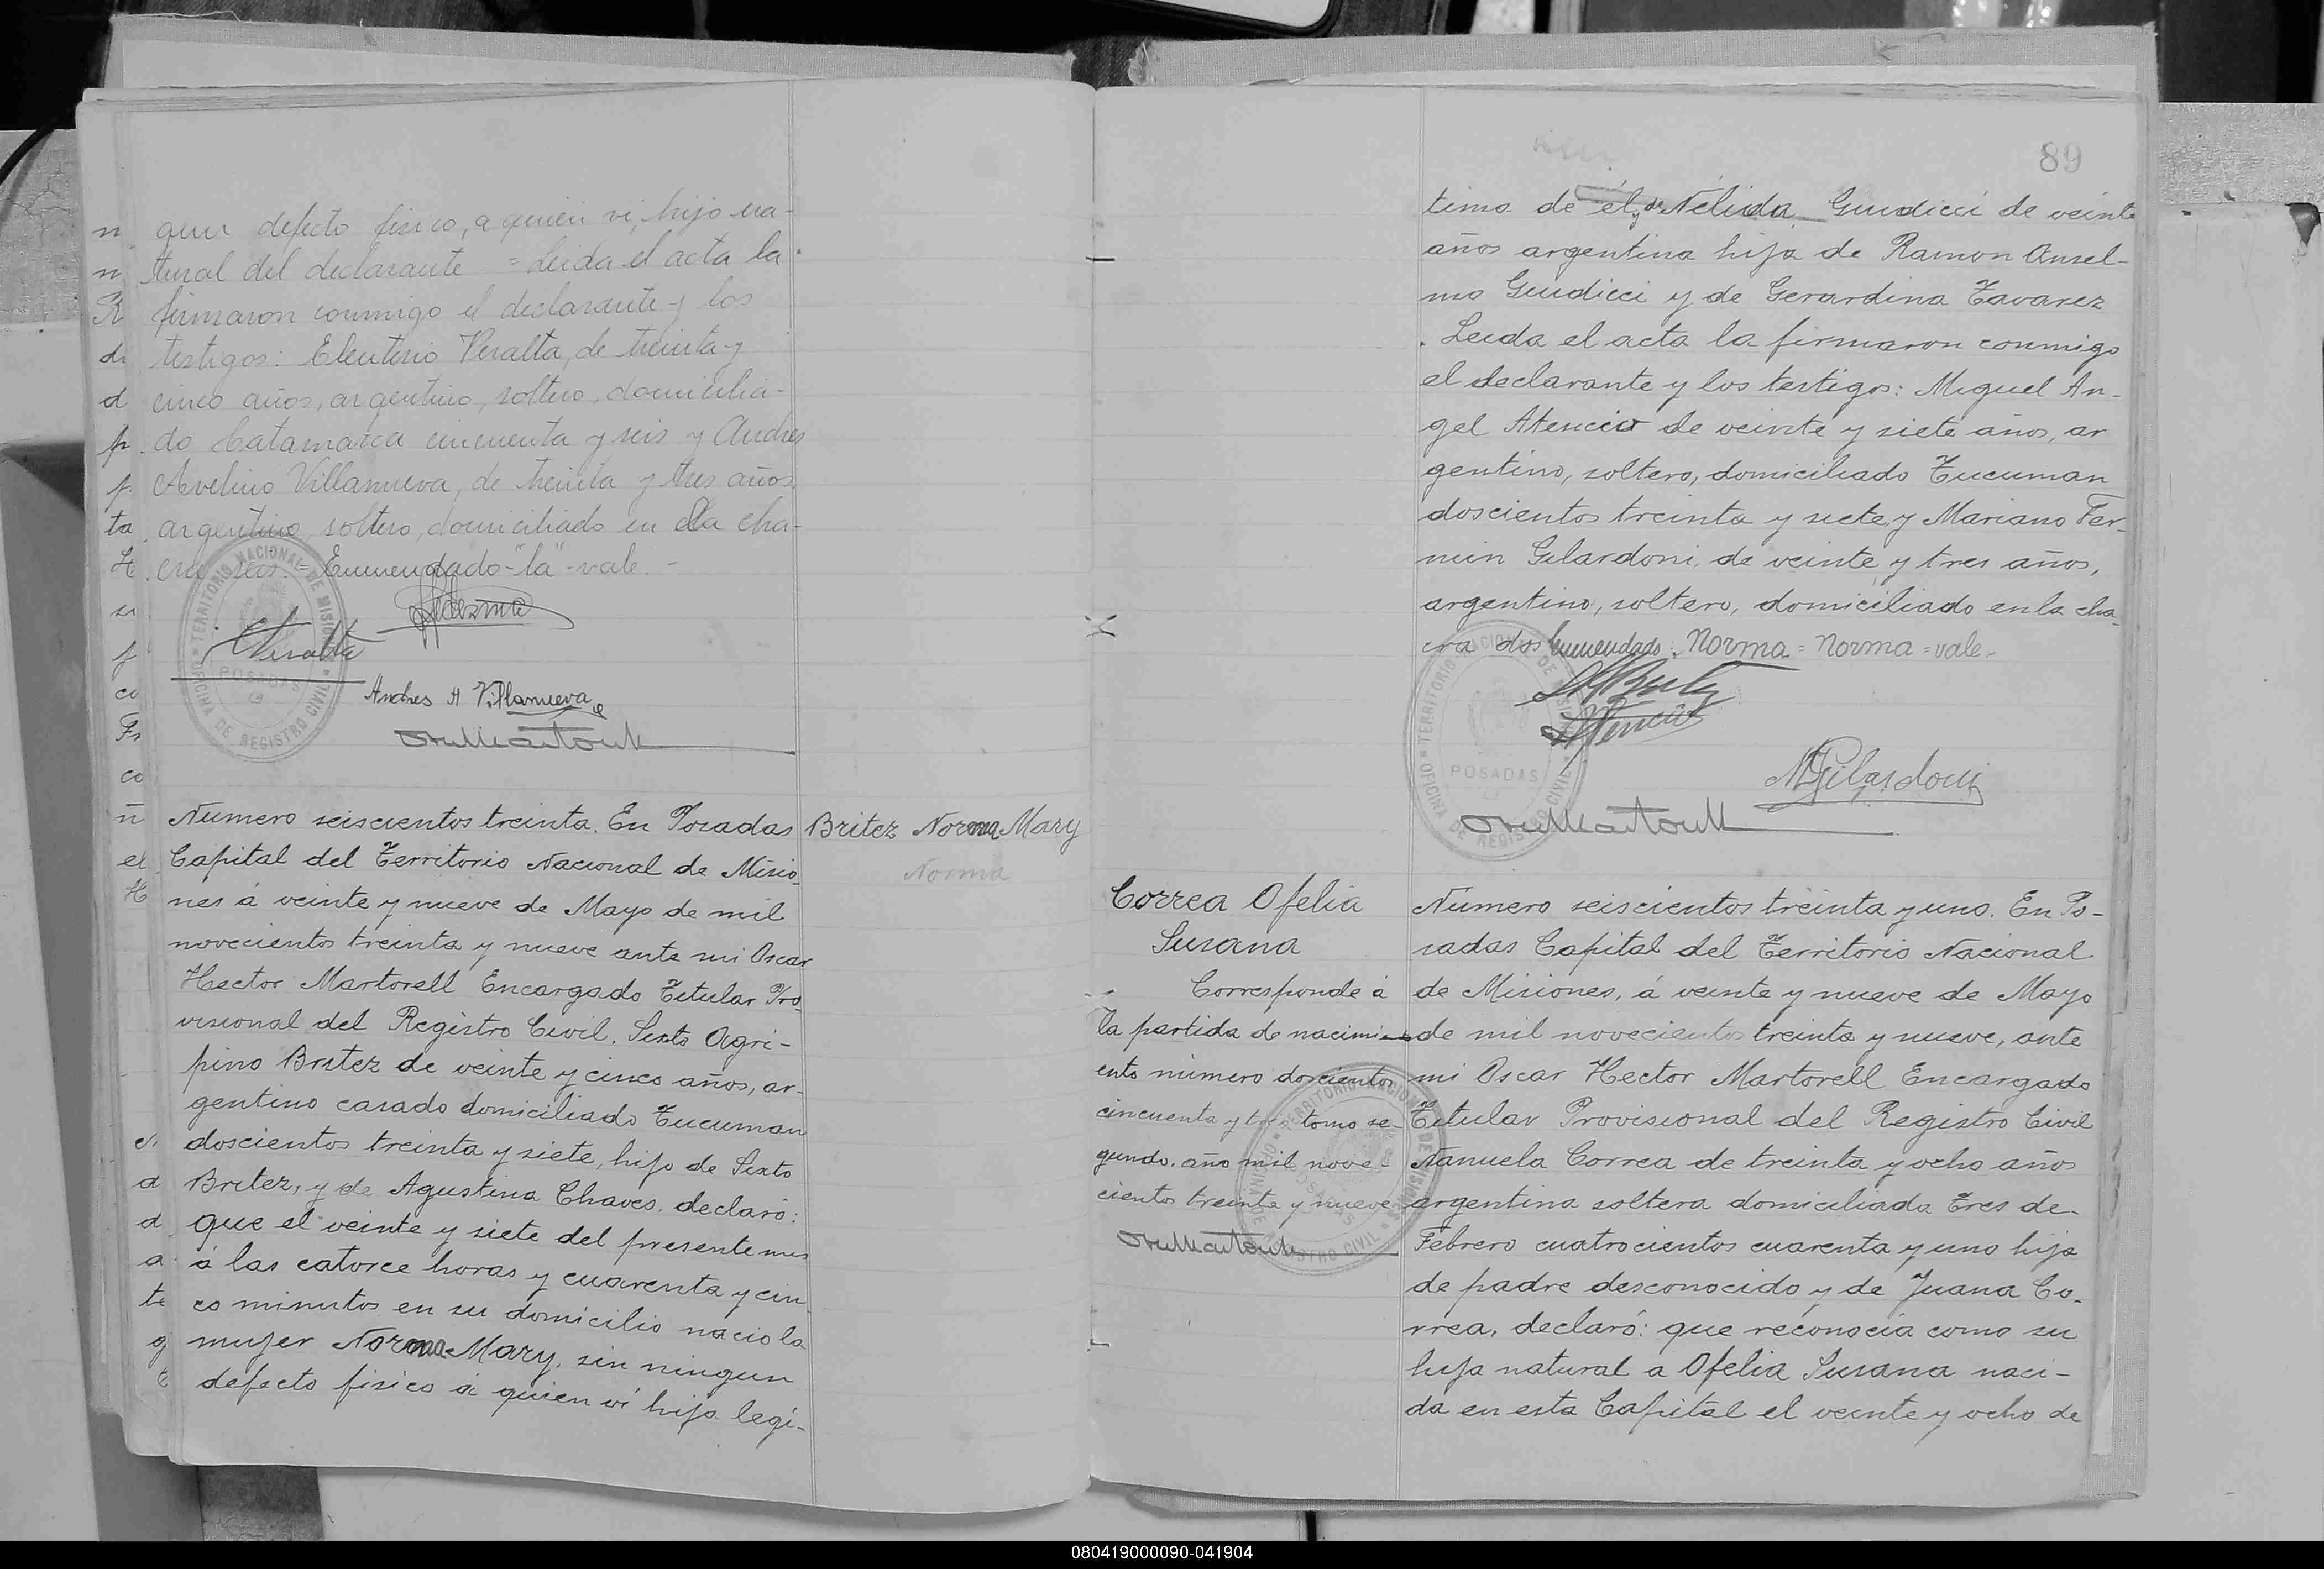 gun defecto fisico, a quien vi, hijo na-
tural del declarante = Leida el acta la
firmaron conmigo el declarante y los
testigos: Eleuterio Peralta, de treinta y
cinco años, argentino, soltero, domicilia-
do Catamarca cincuenta y seis y Andres
Avelino Villanueva, de treinta y tres años,
argentino, soltero, domiciliado en la cha-
cra seis. Enmendado-"la"-vale.-
TERRITORIO NACIONAL DE MISIONES
POSADAS
OFICINA DE REGISTRO CIVIL
Peralta
Andres A Villanueva
Britez Norma Mary
Norma
Numero seiscientos treinta. En Posadas
Capital del Territorio Nacional de Misio-
nes á veinte y nueve de Mayo de mil
novecientos treinta y nueve ante mi Oscar
Hector Martorell Encargado Titular Pro-
visional del Registro Civil. Sixto Agri-
pino Britez de veinte y cinco años, ar-
gentino casado domiciliado Tucuman
doscientos treinta y siete, hijo de Sixto
Britez, y de Agustina Chaves. declaró:
que el veinte y siete del presente mes
á las catorce horas y cuarenta y cin
co minutos en su domicilio nacio la
mujer Norma Mary, sin ningun
defecto fisico á quien vi hija legi-
89
tima de él y de Nelida Giudicci de veinte
años argentina hija de Ramon Ansel-
mo Giudicci y de Gerardina Tavarez
. Leida el acta la firmaron conmigo
el declarante y los testigos: Miguel An-
gel Atencio de veinte y siete años, ar
gentino, soltero, domiciliado Tucuman
doscientos treinta y siete, y Mariano Fer-
min Gilardoni, de veinte y tres años,
argentino, soltero, domiciliado en la cha-
cra dos Enmendado: Norma = Norma = vale.-
TERRITORIO NACIONAL DE MISIONES
POSADAS
OFICINA DE REGISTRO CIVIL
Atencio
MFGilardoni
Correa Ofelia
Susana
Corresponde á
la partida de nacimi-
ento número doscientos
cincuenta y tres tomo se-
gundo, año mil nove-
cientos treinta y nueve
Numero seiscientos treinta y uno. En Po-
sadas Capital del Territorio Nacional
de Misiones, á veinte y nueve de Mayo
de mil novecientos treinta y nueve, ante
mi Oscar Hector Martorell Encargado
Titular Provisional del Registro Civil
Manuela Correa de treinta y ocho años
argentina soltera domiciliada Tres de
Febrero cuatrocientos cuarenta y uno hija
de padre desconocido y de Juana Co-
rrea, declaró: que reconocia como su
hija natural a Ofelia Susana naci-
da en esta Capital el veinte y ocho de
080419000090-041904